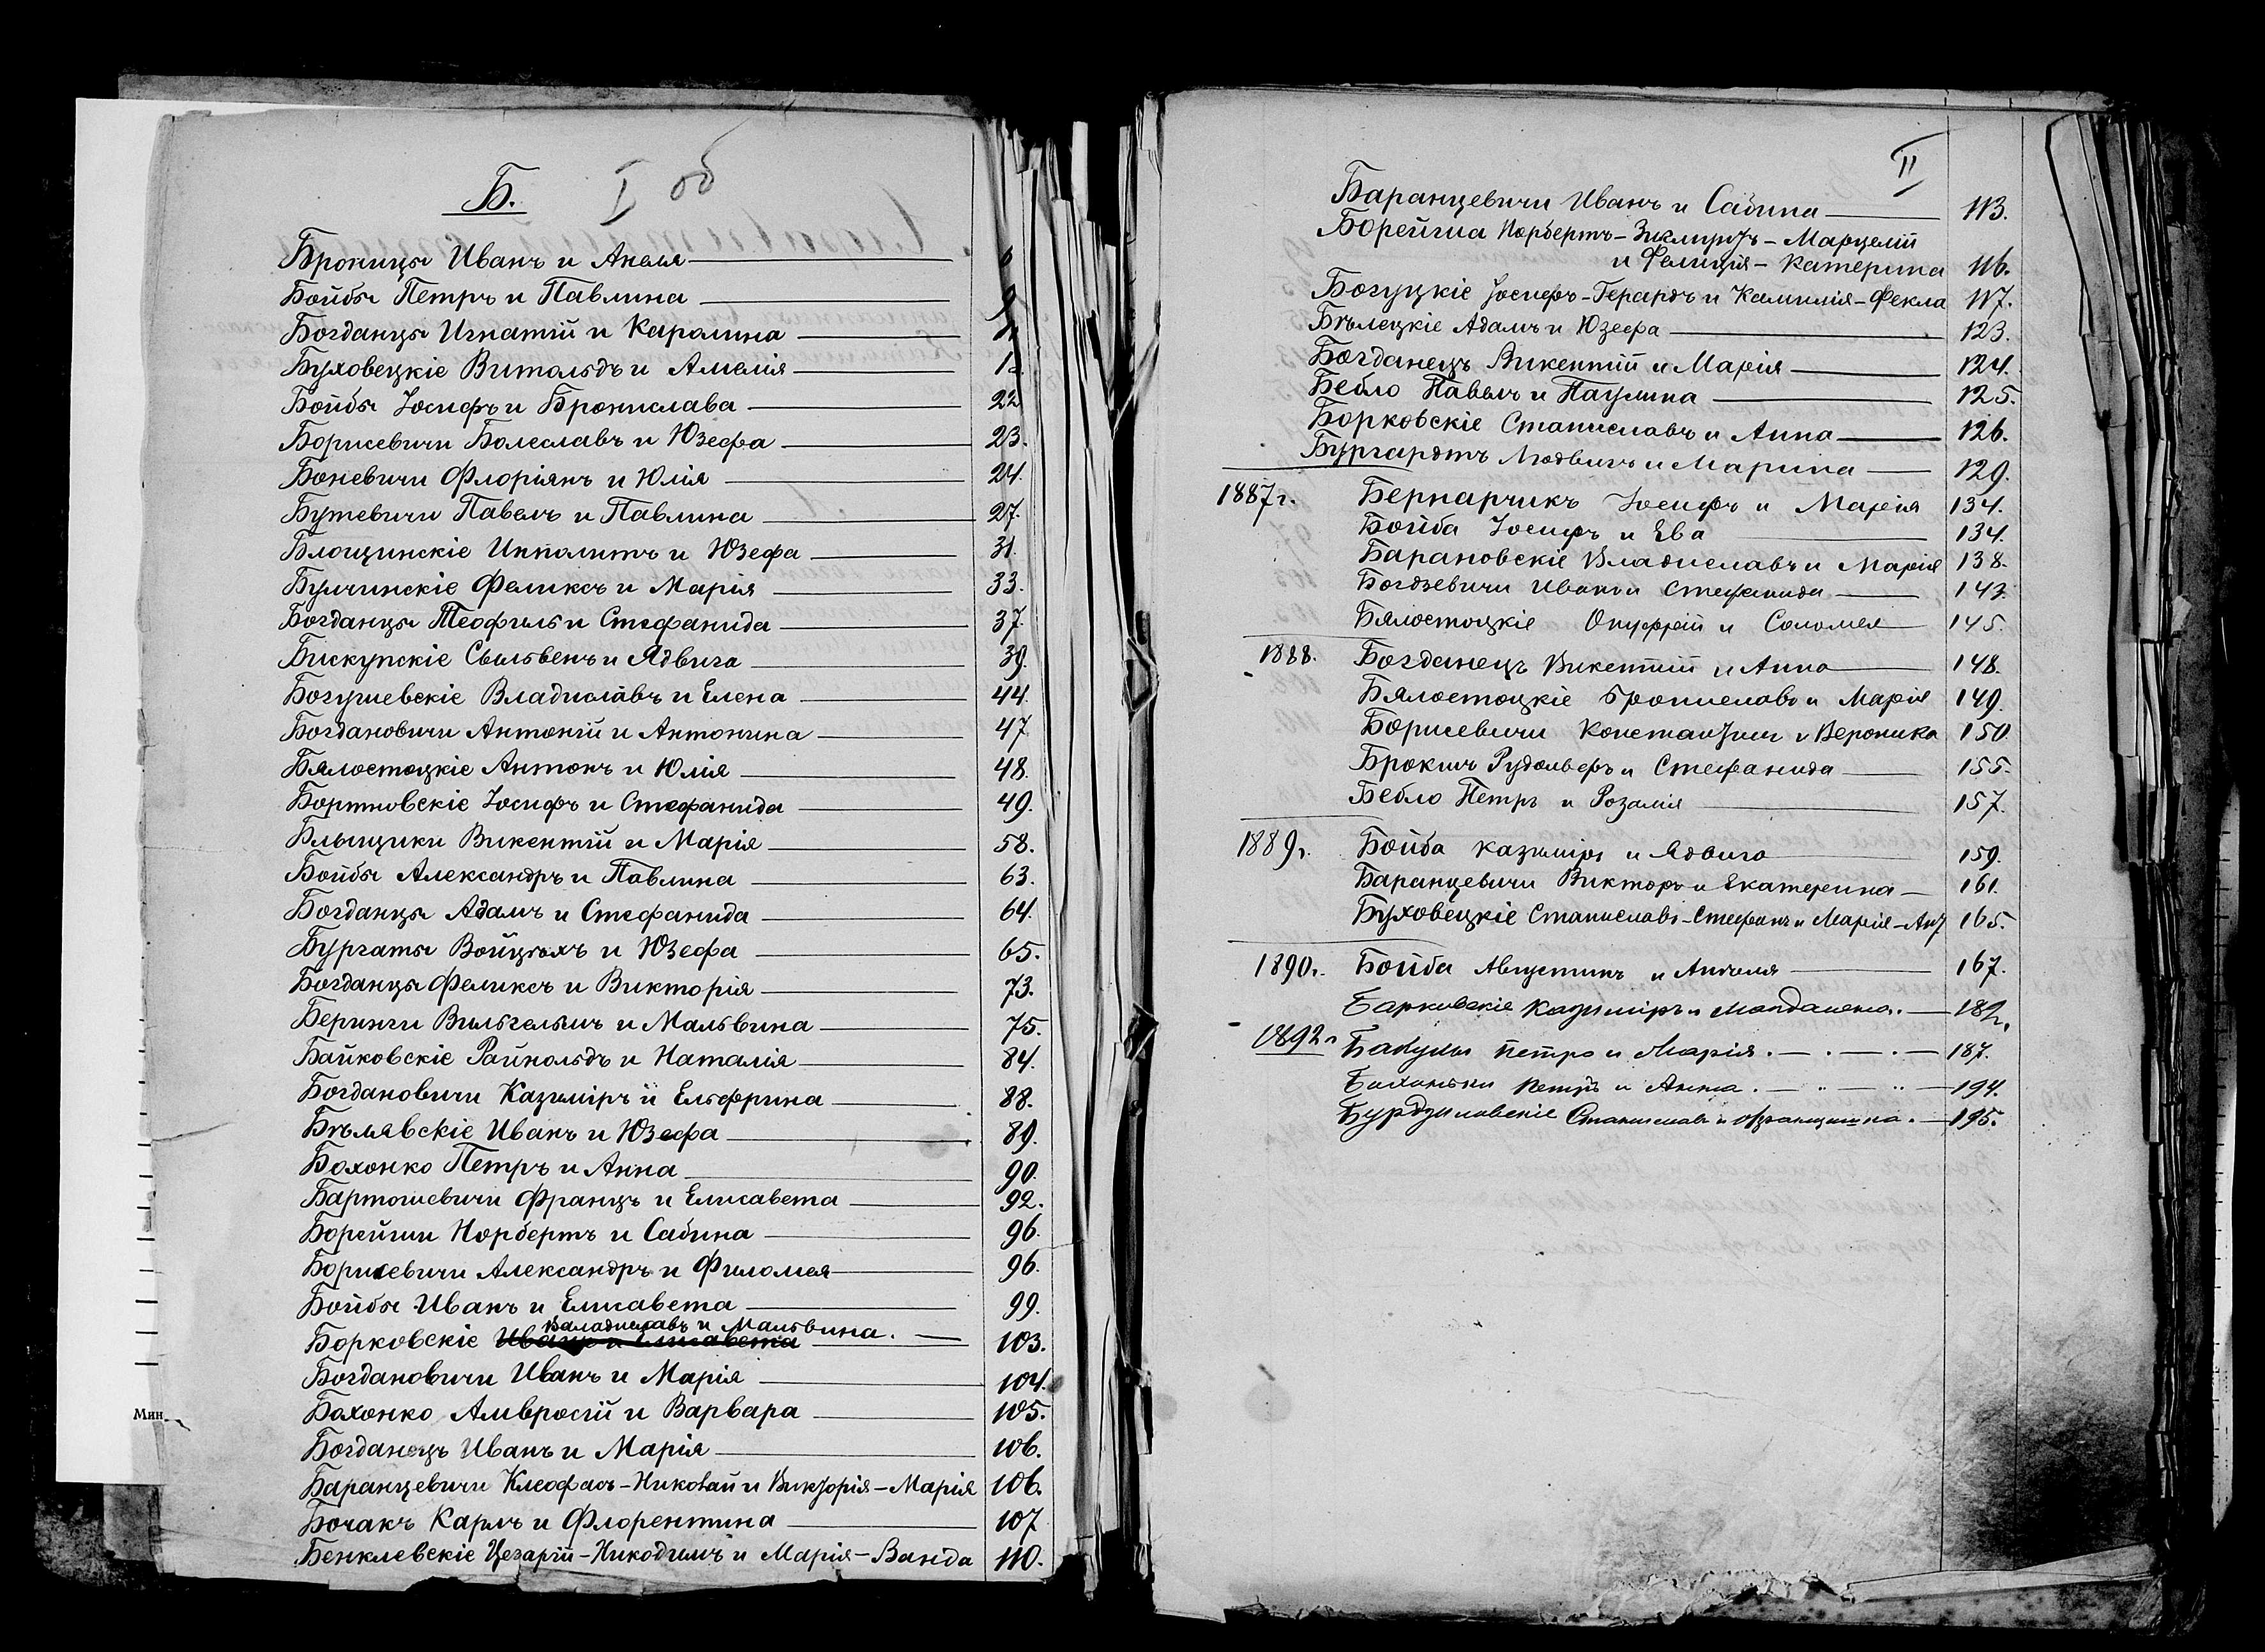 Б.
I об
Броницы Иванъ и Анеля 6
Бойбы Петръ и Павлина 9
Богданцы Игнатій и Каролина
Буховецкіе Витольдъ и Амелія
Бойбы Іосифъ и Бронислава 22
Борисевичи Болеславъ и Юзефа 23.
Боневичи Флоріянъ и Юлія 24.
Бутевичи Павелъ и Павлина 27.
Блощинскіе Ипполитъ и Юзефа 31.
Булчинскіе Феликсъ и Марія 33.
Богданцы Теофиль и Стефанида 37.
Бискупскіе Сыльвенъ и Ядвига 39.
Богушевскіе Владиславъ и Елена 44.
Богдановичи Антоній и Антонина 47
Бялостоцкіе Антонъ и Юлія 48.
Бортновскіе Іосифъ и Стефанида 49.
Блыщики Викентій и Марія 58.
Бойбы Александръ и Павлина 63.
Богданцы Адамъ и Стефанида 64.
Бургаты Войцѣхъ и Юзефа 65.
Богданцы Феликсъ и Викторія 73.
Беринги Вильгельмъ и Мальвина 75.
Байковскіе Райнольдъ и Наталія 84.
Богдановичи Казиміръ и Ельфрина 88.
Бѣлявскіе Иванъ и Юзефа 89.
Бохонко Петръ и Анна 90.
Бартошевичи Францъ и Елисавета 92.
Борейши Норбертъ и Сабина 96.
Борисевичи Александръ и Филомея 96.
Бойбы Иванъ и Елисавета 99.
Валадиславъ и Мальвина.
Борковскіе Иванъ и Елисавета 103.
Богдановичи Иванъ и Марія 104.
Бохонко Амвросій и Варвара 105.
Богданецъ Иванъ и Марія 106.
Баранцевичи Клеофасъ-Николай и Викторія-Марія 106.
Бочакъ Карлъ и Флорентина 107
Бенклевскіе Цезарій-Никодимъ и Марія-Ванда 110.
Мин.
II
Баранцевичи Иванъ и Сабина 113.
Борейша Норбертъ- -Марцелій
и Фелиція-Катерина 116.
Богуцкіе Іосифъ-Герардъ и Камилія-Фекла 117.
Бѣлецкіе Адамъ и Юзефа 123.
Богданецъ Викентій и Марія 124.
Бебло Павелъ и Паулина 125.
Борковскіе Станиславъ и Анна 126.
Бургардтъ Людвигъ и Марина 129.
1887г. Бернарчикъ Іосифъ и Марія 134.
Бойба Іосифъ и Ева 134.
Барановскіе Владиславъ и Марія 138.
Богдзевичи Иванъ и Стефанида 143.
Бялостоцкіе Онуфрій и Соломея 145.
1888. Богданецъ Викентій и Анна 148.
Бялостоцкіе Брониславъ и Марія 149.
Борисевичи Константин и Вероника 150
Брокшъ Рудольфъ и Стефанида 155.
Бебло Петръ и Розалія 157.
1889г. Бойба Казиміръ и Ядвига 159.
Баранцевичи Викторъ и Екатерина 161.
Буховецкіе Станиславъ-Стефанъ и Марія-Ант 165.
1890г. Бойба Августинъ и Ангеля 167.
Барковскіе Казиміръ и Магдалена. 182.
1892г Бакулы Петръ и Марія. 187.
Бохоньки Петръ и Анна. 194.
Бурдзиловскіе Станиславъ и Францишка. 195.